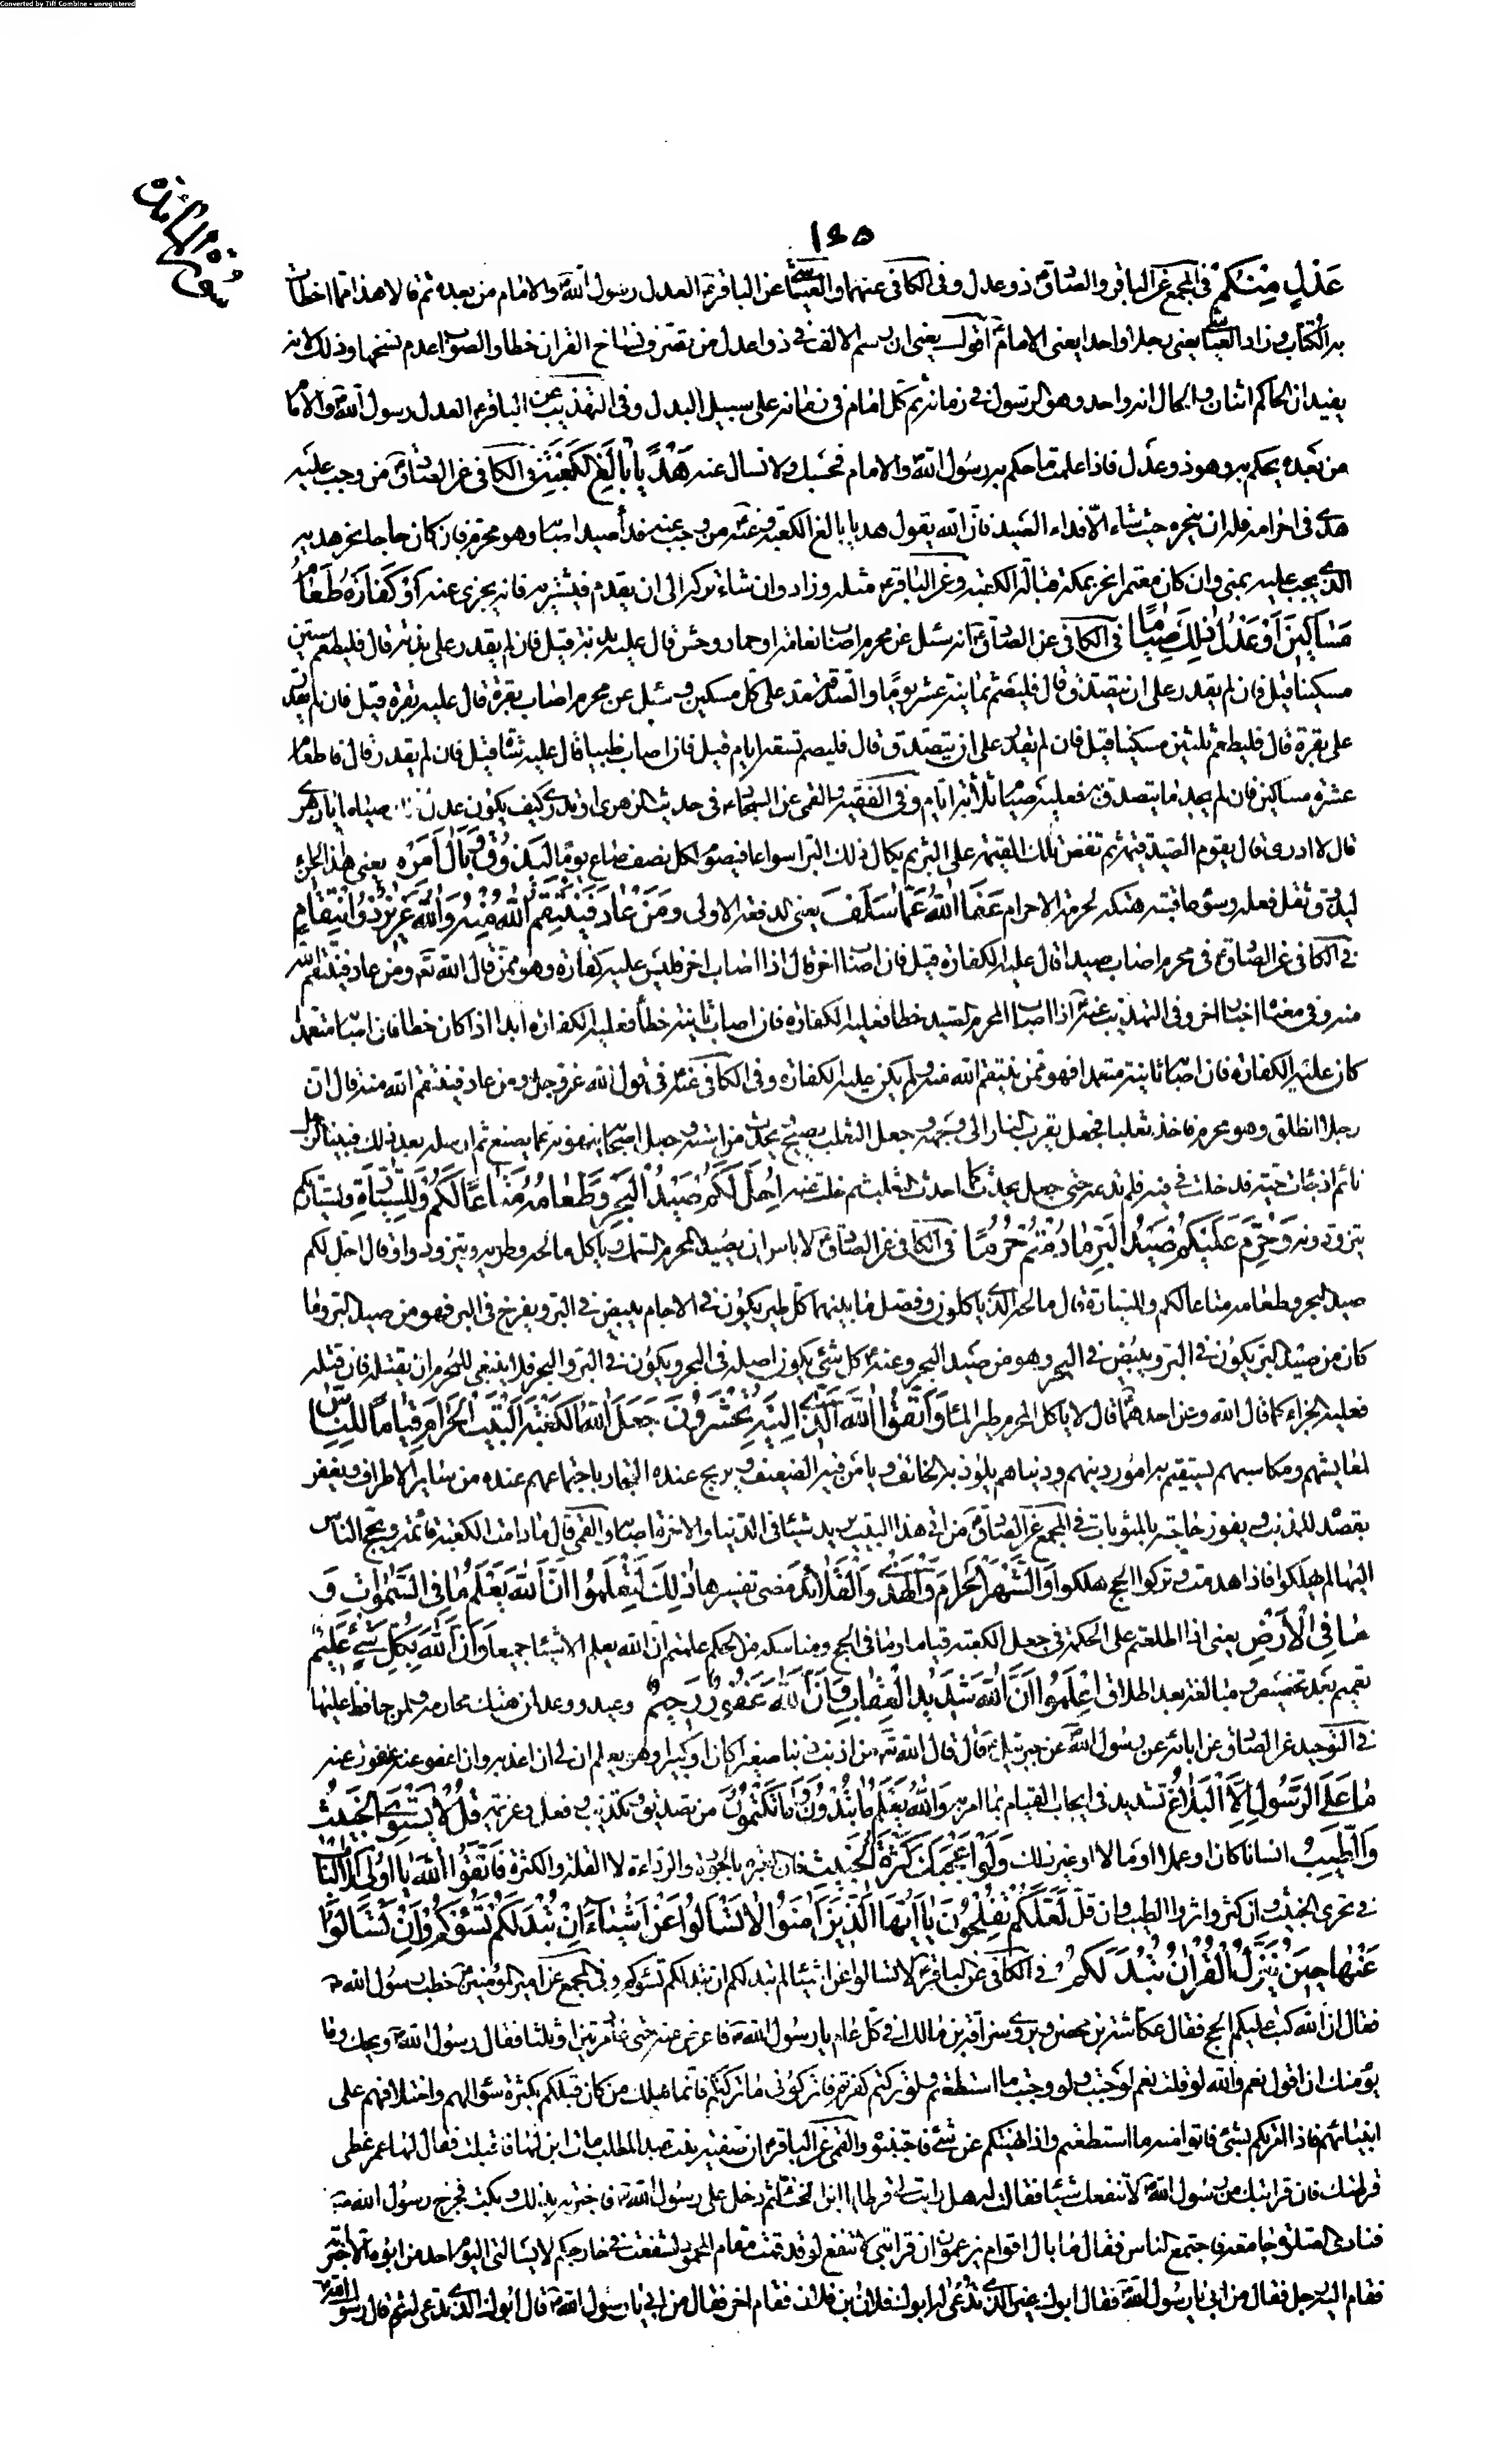 Converted by Tiff Combine - unregistered
سورة المائدة
١٤٥
عَدْلٍ مِنْكُمْ في المجمع عن الباقر والصادق ذو عدل وفي الكافي عنهما والعياشي عن الباقر العدل رسول الله والامام من بعده ثم قالا هذا مما اخطات
به الكتاب وزاد العياشي يعني رجلا واحدا يعني الامام اقول يعني ان رسم الالف في ذوا عدل من تصرف نساخ القران خطا والصواب عدم نسخها وذلك لانه
يفيد ان الحاكم اثنان والحال انه واحد وهو الرسول في زمانه ثم كل امام في زمانه على سبيل البدل وفي التهذيب عن الباقر العدل رسول الله والامام
من بعده يحكم به وهو ذو عدل فاذا علمت ما حكم به رسول الله والامام فحسبك ولا تسال عنه هَدْيًا بَالِغَ الْكَعْبَةِ في الكافي عن الصادق من وجب عليه
هدي في احرامه فله ان ينحره حيث شاء الا فداء الصيد فان الله يقول هديا بالغ الكعبة وعنه من وجب عليه فداء صيد اصابه وهو محرم فان كان حاجا نحر هديه
الذي يجب عليه بمنى وان كان معتمرا نحر بمكة قبالة الكعبة وعن الباقر مثله وزاد وان شاء تركه الى ان يقدم فيشتريه فانه يجزي عنه أَوْ كَفَّارَةٌ طَعَامُ
مَسَاكِينَ أَوْ عَدْلُ ذَلِكَ صِيَامًا في الكافي عن الصادق انه سئل عن محرم اصاب نعامة او حمار وحش قال عليه بدنة قيل فان لم يقدر على بدنة قال فليطعم ستين
مسكينا قيل فان لم يقدر على ان يتصدق قال فليصم ثمانية عشر يوما والصدقة مد على كل مسكين وسئل عن محرم اصاب بقرة قال عليه بقرة قيل فان لم يقدر
على بقرة قال فليطعم ثلثين مسكينا قيل فان لم يقدر على ان يتصدق قال فليصم تسعة ايام قيل فان اصاب ظبيا قال عليه شاة قيل فان لم يقدر قال فاطعام
عشرة مساكين فان لم يجد ما يتصدق به فعليه صيام ثلاثة ايام وفي الفقيه والقمي عن السجاد في حديث الزهري او تدري كيف يكون عدل ذلك صياما يا زهري
قال لا ادري قال يقوم الصيد قيمة ثم تفض تلك القيمة على البر ثم يكال ذلك البر اصواعا فيصوم لكل نصف صاع يوما لِيَذُوقَ وَبَالَ أَمْرِهِ يعني هذا الجزاء
ليذوق ثقل فعله وسوء عاقبة هتكه لحرمة الاحرام عَفَا اللهُ عَمَّا سَلَفَ يعني الدفعة الاولى وَمَنْ عَادَ فَيَنْتَقِمُ اللهُ مِنْهُ وَاللهُ عَزِيزٌ ذُو انْتِقَامٍ
في الكافي عن الصادق في محرم اصاب صيدا قال عليه الكفارة قيل فان اصاب اخر قال اذا اصاب اخر فليس عليه كفارة وهو ممن قال الله تعالى ومن عاد فينتقم الله
منه وفي معناه اخبار اخر وفي التهذيب عنه اذا اصاب المحرم الصيد خطا فعليه الكفارة فان اصاب ثانية خطأ فعليه الكفارة ابدا اذا كان خطا فان اصابه متعمدا
كان عليه الكفارة فان اصابه ثانية متعمدا فهو ممن ينتقم الله منه ولم يكن عليه الكفارة وفي الكافي عنه في قول الله عز وجل ومن عاد فينتقم الله منه قال ان
رجلا انطلق وهو محرم فاخذ ثعلبا فجعل يقرب النار الى وجهه وجعل الثعلب يصيح ويحدث من استه وجعل اصحابه ينهونه عما يصنع ثم ارسله بعد ذلك فبينا الرجل
نائم اذ جائت حية فدخلت في فيه فلم تدعه حتى جعل يحدث كما احدث الثعلب ثم خلت عنه أُحِلَّ لَكُمْ صَيْدُ الْبَحْرِ وَطَعَامُهُ مَتَاعًا لَكُمْ وَلِلسَّيَّارَةِ ولسيارتكم
يتزودونه وَحُرِّمَ عَلَيْكُمْ صَيْدُ الْبَرِّ مَا دُمْتُمْ حُرُمًا في الكافي عن الصادق لا باس ان يصيد المحرم السمك وياكل مالحه وطريه ويتزود وقال احل لكم
صيد البحر وطعامه متاعا لكم وللسيارة قال مالحه الذي ياكلون وفصل ما بينهما كل طير يكون في الاجام يبيض في البر ويفرخ في البر فهو من صيد البر وما
كان من صيد البر يكون في البر ويبيض في البحر وهو من صيد البحر وعنه كل شئ يكون اصله في البحر ويكون في البر والبحر فلا ينبغي للمحرم ان يقتله فان قتله
فعليه الجزاء كما قال الله وعن احدهما قال لا ياكل المحرم طير الماء وَاتَّقُوا اللهَ الَّذِي إِلَيْهِ تُحْشَرُونَ جَعَلَ اللهُ الْكَعْبَةَ الْبَيْتَ الْحَرَامَ قِيَامًا لِلنَّاسِ
لمعايشهم ومكاسبهم يستقيم به امور دينهم ودنياهم يلوذ به الخائف ويامن فيه الضعيف ويربح عنده التجار باجتماعهم عنده من ساير الاطراف ويغفر
بقصده المذنب ويفوز حاجه بالمثوبات في المجمع عن الصادق من اتى هذا البيت يريد شيئا في الدنيا والاخرة اصابه والقمي قال ما دامت الكعبة قائمة ويحج الناس
اليها لم يهلكوا فاذا هدمت وتركوا الحج هلكوا وَالشَّهْرَ الْحَرَامَ وَالْهَدْيَ وَالْقَلَائِدَ مضى تفسيرها ذَلِكَ لِتَعْلَمُوا أَنَّ اللهَ يَعْلَمُ مَا فِي السَّمَوَاتِ وَ
مَا فِي الْأَرْضِ يعني اذا اطلعتم على الحكمة في جعل الكعبة قياما وما في الحج ومناسكه من الحكم علمتم ان الله يعلم الاشياء جميعا وَأَنَّ اللهَ بِكُلِّ شَيْءٍ عَلِيمٌ
تعميم بعد تخصيص ومبالغة بعد اطلاق اعْلَمُوا أَنَّ اللهَ شَدِيدُ الْعِقَابِ وَأَنَّ اللهَ غَفُورٌ رَحِيمٌ وعيد ووعد لمن هتك محارمه ولمن حافظ عليها
في التوحيد عن الصادق عن ابائه عن رسول الله عن جبرئيل قال قال الله تعالى من اذنب ذنبا صغيرا كان او كبيرا وهو يعلم ان لي ان اعذبه وان اعفو عنه عفوت عنه
مَا عَلَى الرَّسُولِ إِلَّا الْبَلَاغُ تشديد في ايجاب القيام بما امر به وَاللهُ يَعْلَمُ مَا تُبْدُونَ وَمَا تَكْتُمُونَ من تصديق وتكذيب وفعل وعزيمة قُلْ لَا يَسْتَوِي الْخَبِيثُ
وَالطَّيِّبُ انسانا كان او عملا او مالا او غير ذلك وَلَوْ أَعْجَبَكَ كَثْرَةُ الْخَبِيثِ فان العبرة بالجودة والرداءة لا القلة والكثرة فَاتَّقُوا اللهَ يَا أُولِي الْأَلْبَابِ
في تحري الخبيث وان كثر واثروا الطيب وان قل لَعَلَّكُمْ تُفْلِحُونَ يَا أَيُّهَا الَّذِينَ آمَنُوا لَا تَسْأَلُوا عَنْ أَشْيَاءَ إِنْ تُبْدَ لَكُمْ تَسُؤْكُمْ وَإِنْ تَسْأَلُوا
عَنْهَا حِينَ يُنَزَّلُ الْقُرْآنُ تُبْدَ لَكُمْ في الكافي عن الباقر لا تسالوا عن اشياء لم تبد لكم ان تبد لكم تسؤكم وفي المجمع عن امير المؤمنين خطب رسول الله
فقال ان الله كتب عليكم الحج فقال عكاشة بن محصن ويروى سراقة بن مالك افي كل عام يا رسول الله فاعرض عنه حتى عاد مرتين او ثلثا فقال رسول الله ويحك وما
يؤمنك ان اقول نعم والله لو قلت نعم لوجبت ولو وجبت ما استطعتم ولو تركتم كفرتم فاتركوني ما تركتكم فانما هلك من كان قبلكم بكثرة سؤالهم واختلافهم على
انبيائهم فاذا امرتكم بشئ فاتوا منه ما استطعتم واذا نهيتكم عن شئ فاجتنبوه والقمي عن الباقر ان صفية بنت عبد المطلب مات ابن لها فاقبلت فقال لها عمر غطي
قرطك فان قرابتك من رسول الله لا تنفعك شيئا فقالت له هل رايت لي قرطا يا ابن اللخناء ثم دخل على رسول الله فاخبرته بذلك وبكت فخرج رسول الله
فنادى الصلوة جامعة فاجتمع الناس فقال ما بال اقوام يزعمون ان قرابتي لا تنفع لو قد قمت مقام المحمود لشفعت في خارجكم لا يسالني اليوم احد من ابوه الا اخبرته
فقام اليه رجل فقال من ابي يا رسول الله فقال ابوك غير الذي تدعى له ابوك فلان بن فلان فقام اخر فقال من ابي يا رسول الله قال ابوك الذي تدعى له ثم قال رسول الله